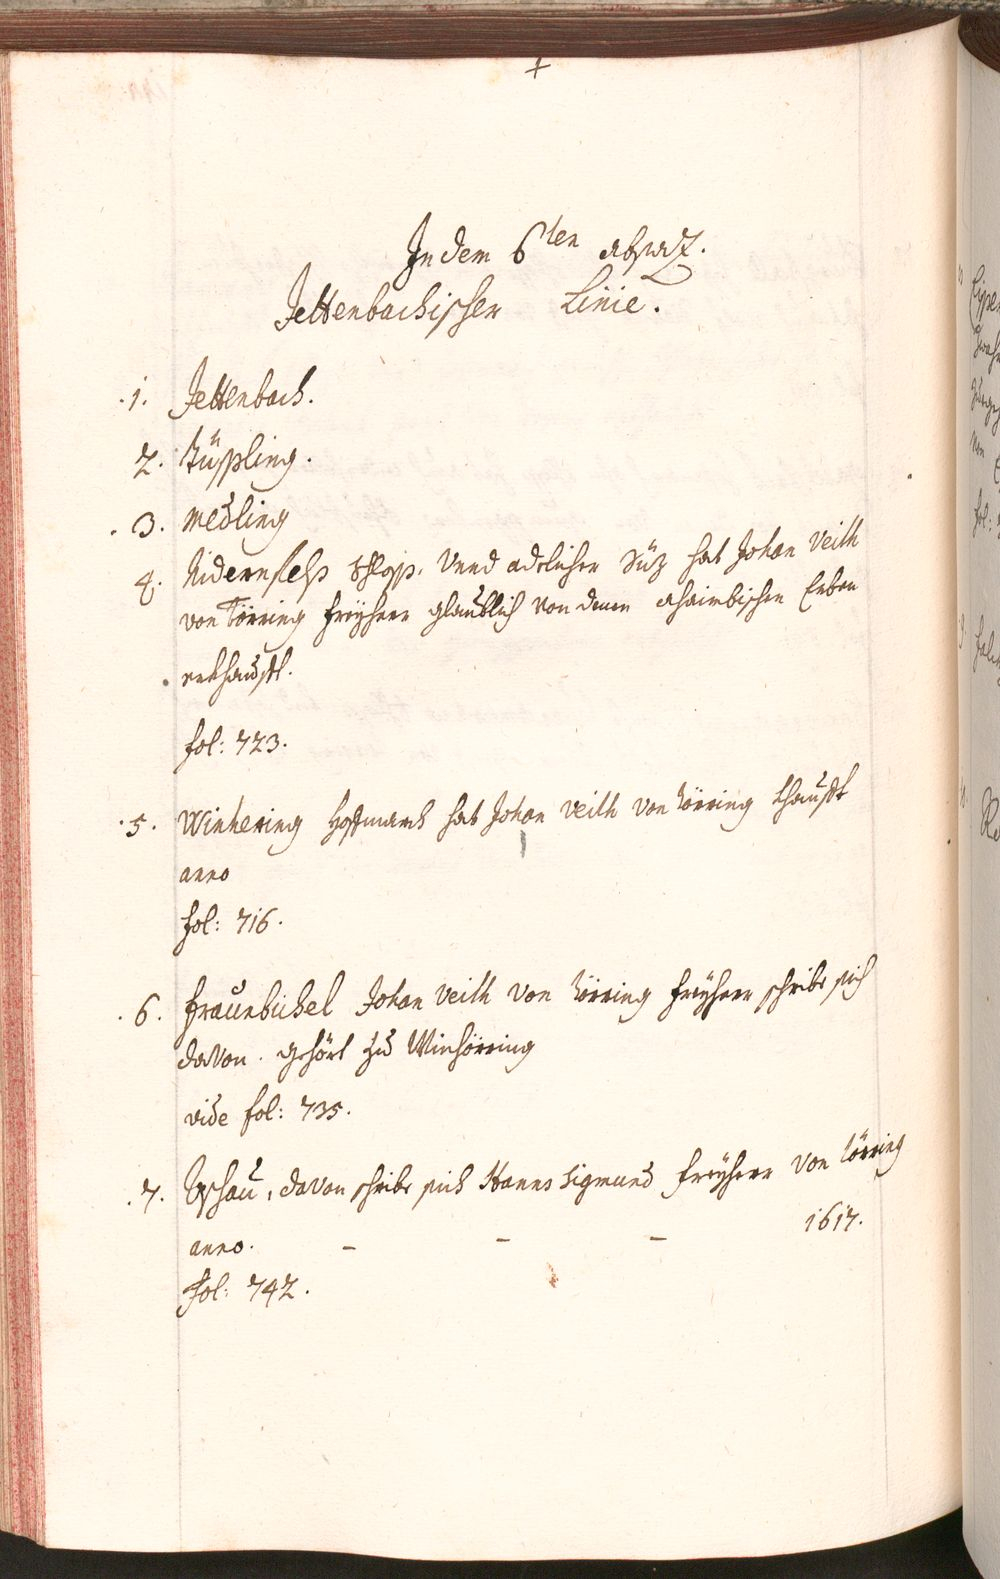 In dem 6ten absatz.
Jettenbachischer Linie.
1. Jettenbach.
2. Tüssling.
3. Medling
4. Nidernfelss Schloss, Vnnd adelicher Siz hat Johan Veith
von Törring freyherr glaublich von denen ahaimbischen Erben
erkhaufft.
fol: 723.
5. Winhering hoffmarch hat Johan Veith von Törring khaufft
anno
fol: 716.
6. fraunbichel Johan Veith von Törring freyherr schribe sich
davon. gehört zu Winhörring
vide fol: 735.
7. davon schribe sich Hanns Sigmund freyherr von Törring
anno. - - - 1617.
fol: 742.